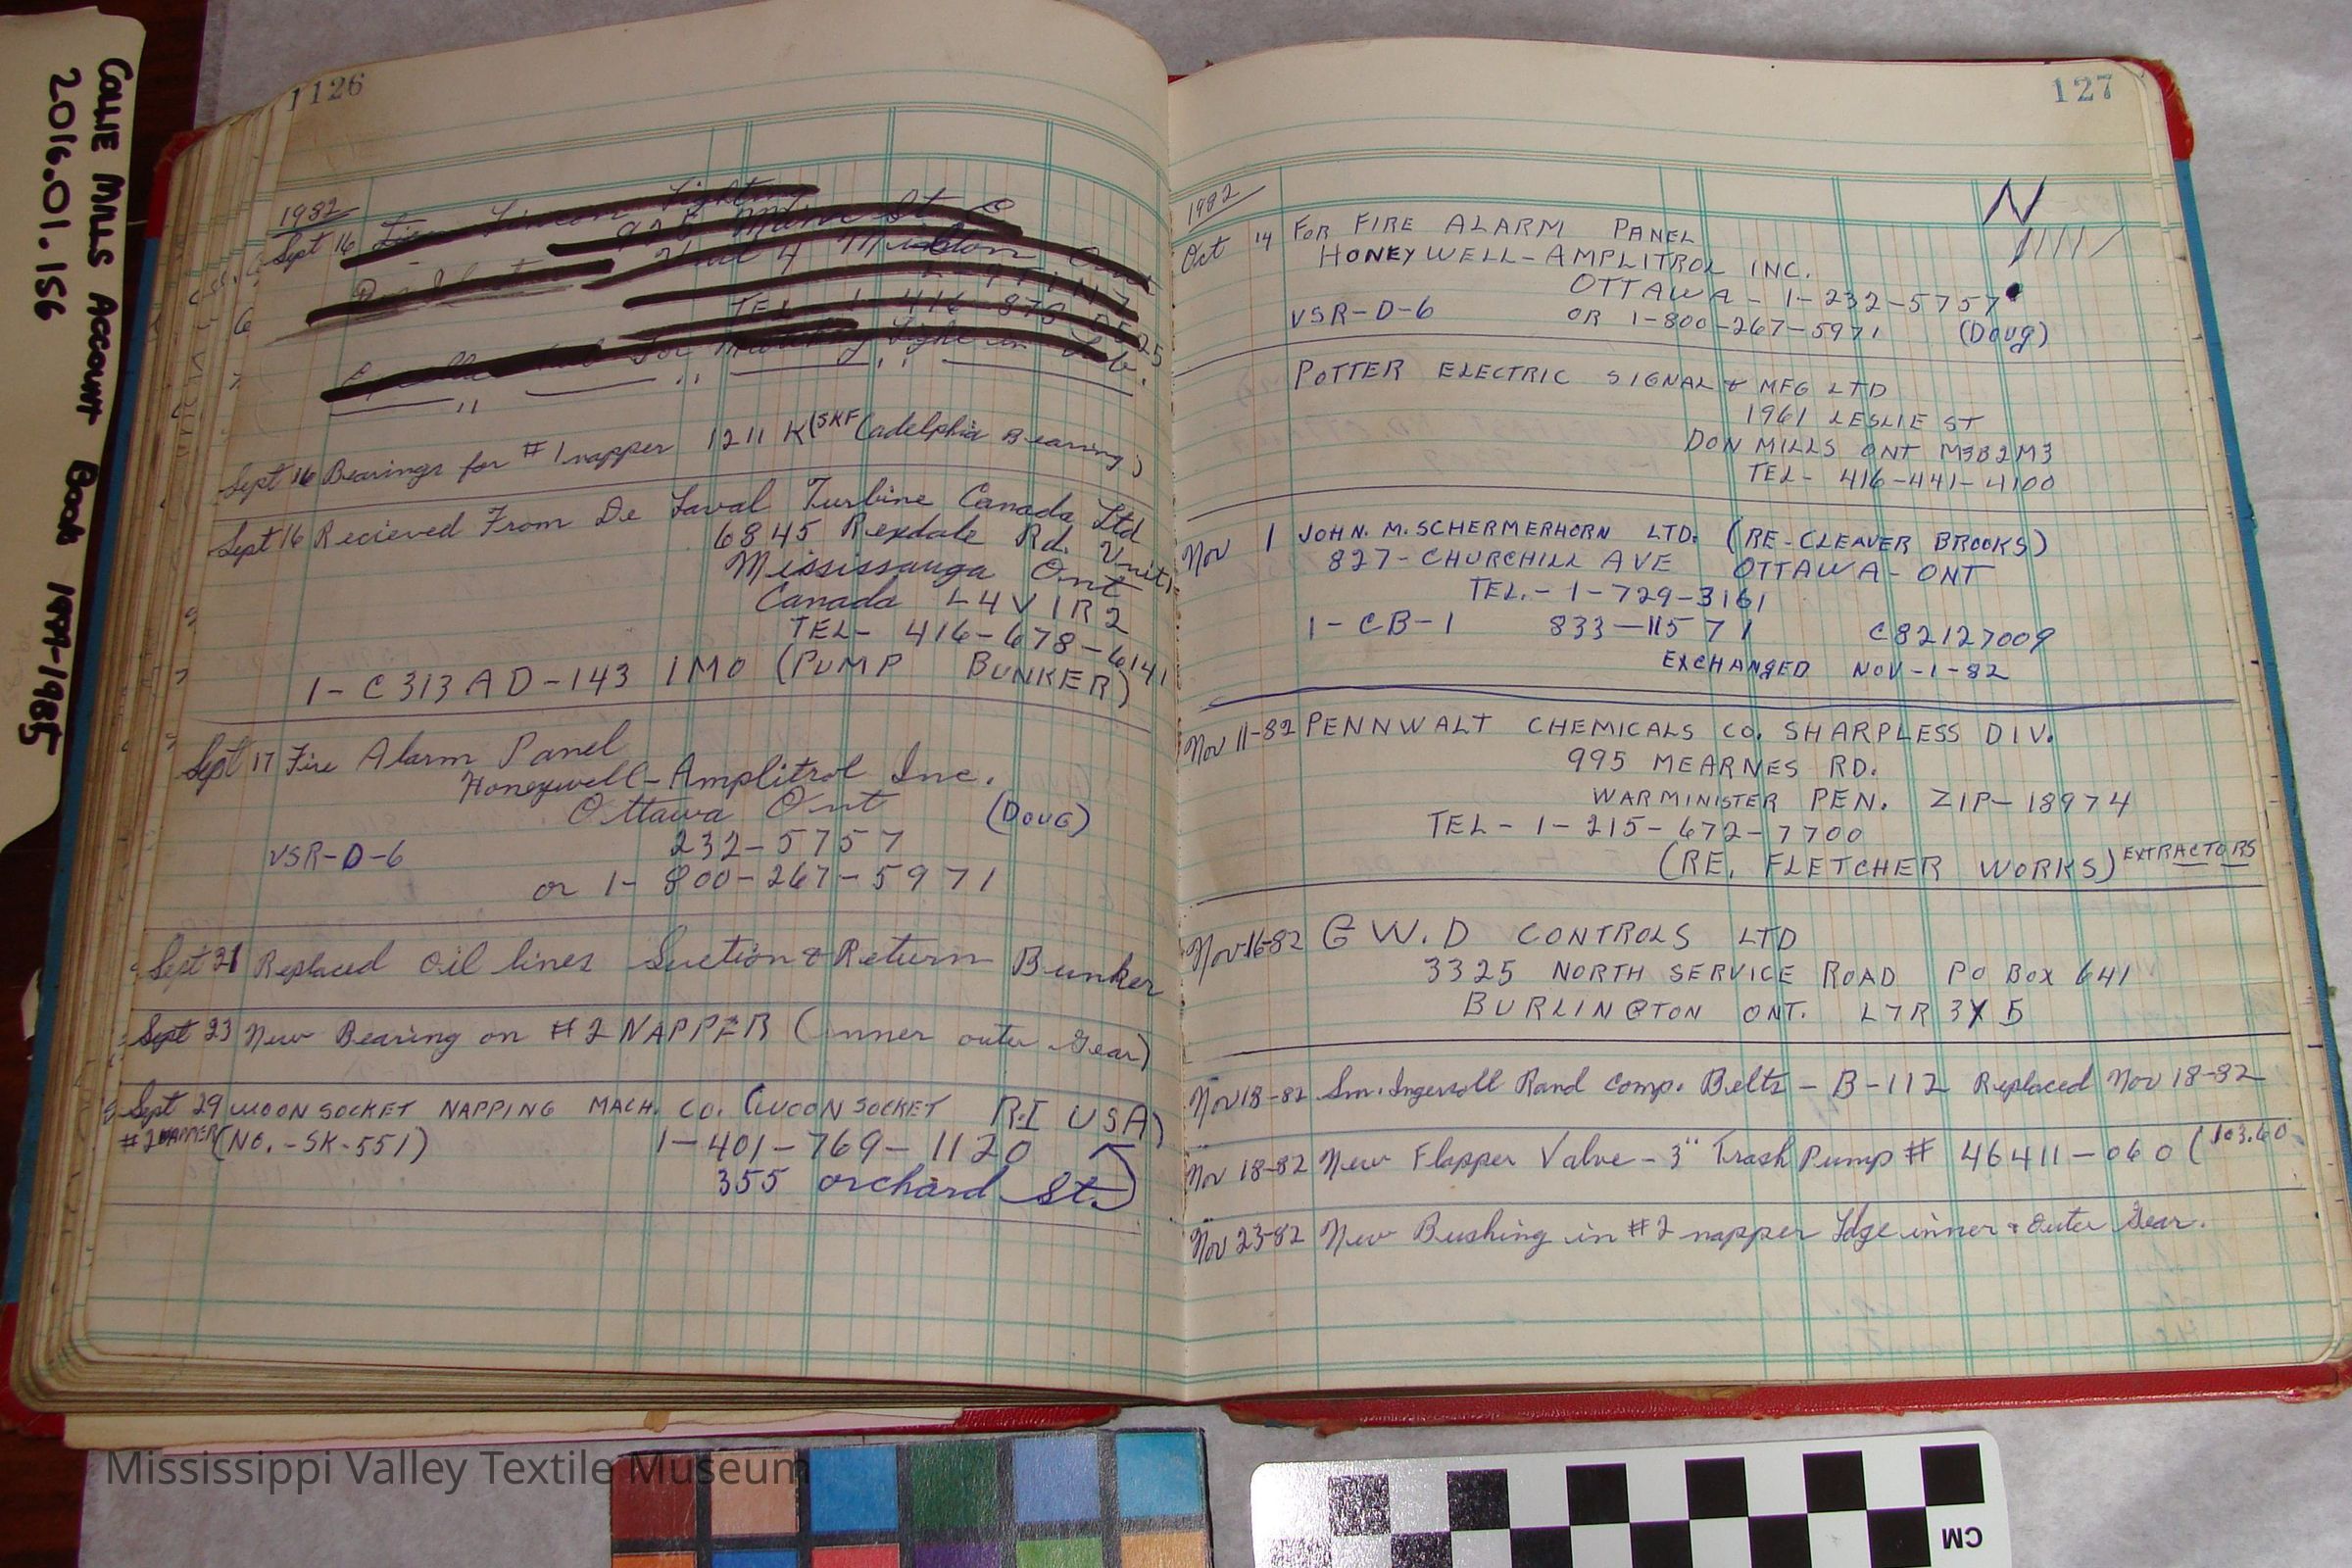 COLLIE MILLS ACCOUNT BOOK 1971-1985
2016.01.156
126
1982
Sept 16
Lighting
925 Main St E
Unit 4 Milton Ont
TEL 1-416-878
For Light in Lab.
" " "
Sept 16 Bearings for #1 napper 1211 K (SKF (adelphia Bearing)
Sept 16 Recieved From De Laval Turbine Canada Ltd
6845 Rexdale Rd. Unit 1
Mississauga Ont
Canada L4V 1R2
TEL- 416-678-6141
1- C313AD-143 IMO (PUMP BUNKER)
Sept 17 Fire Alarm Panel
Honeywell-Amplitrol Inc.
Ottawa Ont (DOUG)
VSR-D-6 232-5757
or 1-800-267-5971
Sept 21 Replaced Oil lines Suction & Return Bunker
Sept 23 New Bearing on #2 NAPPER (inner outer Gear)
Sept 29 WOONSOCKET NAPPING MACH. CO. (WOONSOCKET R.I USA)
#2 NAPPER (NO.-SK-551) 1-401-769-1120
355 orchard St.
127
1982
N
Oct 14 FOR FIRE ALARM PANEL
HONEYWELL-AMPLITROL INC.
OTTAWA - 1-232-5757
VSR-D-6 OR 1-800-267-5971 (Doug)
POTTER ELECTRIC SIGNAL & MFG LTD
1961 LESLIE ST
DON MILLS ONT M3B2M3
TEL- 416-441-4100
Nov 1 JOHN. M. SCHERMERHORN LTD. (RE-CLEAVER BROOKS)
827-CHURCHILL AVE OTTAWA-ONT
TEL.-1-729-3161
1-CB-1 833-11571 C82127009
EXCHANGED NOV-1-82
Nov 11-82 PENNWALT CHEMICALS CO. SHARPLESS DIV.
995 MEARNES RD.
WARMINISTER PEN. ZIP-18974
TEL-1-215-672-7700
(RE. FLETCHER WORKS) EXTRACTORS
Nov-16-82 G W.D CONTROLS LTD
3325 NORTH SERVICE ROAD PO BOX 641
BURLINGTON ONT. L7R 3Y5
Nov 18-82 Sm. Ingersoll Rand Comp. Belts - B-112 Replaced Nov 18-82
Nov 18-82 New Flapper Valve - 3" Trash Pump # 46411-060 (103.60
Nov 23-82 New Bushing in #2 napper Idge inner & Outer Gear.
Mississippi Valley Textile Museum
CM